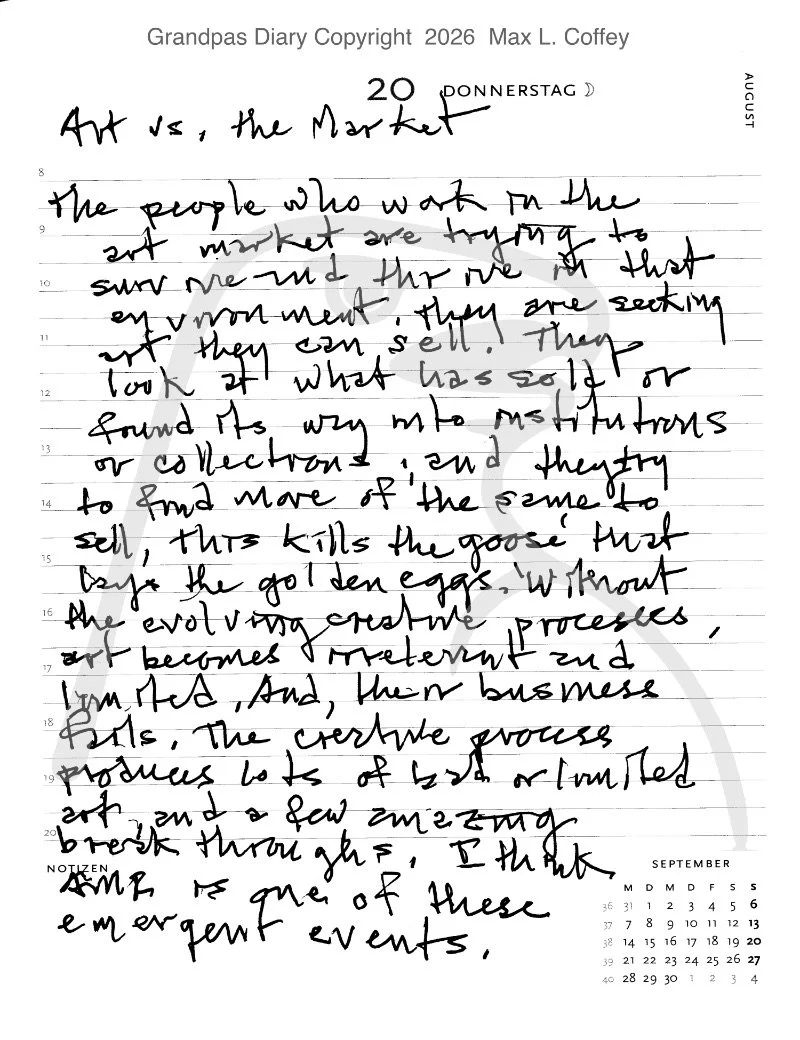 Grandpas Diary Copyright 2026 Max L. Coffey
20 DONNERSTAG
AUGUST
Art vs. the Market
8
The people who work in the
9
art market are trying to
survive and thrive in that
10
environment. they are seeking
11
art they can sell. They
look at what has sold or
12
found its way into institutions
13
or collections, and they try
14
to find more of the same to
sell, this kills the goose that
15
lays the golden eggs. Without
16
the evolving creative processes,
art becomes irrelevant and
17
limited, And, their business
18
fails. The creative process
19
produces lots of bad or limited
art, and a few amazing
20
break throughs. I think
NOTIZEN
is one of these
emergent events.
SEPTEMBER
M D M D F S S
36 31 1 2 3 4 5 6
37 7 8 9 10 11 12 13
38 14 15 16 17 18 19 20
39 21 22 23 24 25 26 27
40 28 29 30 1 2 3 4